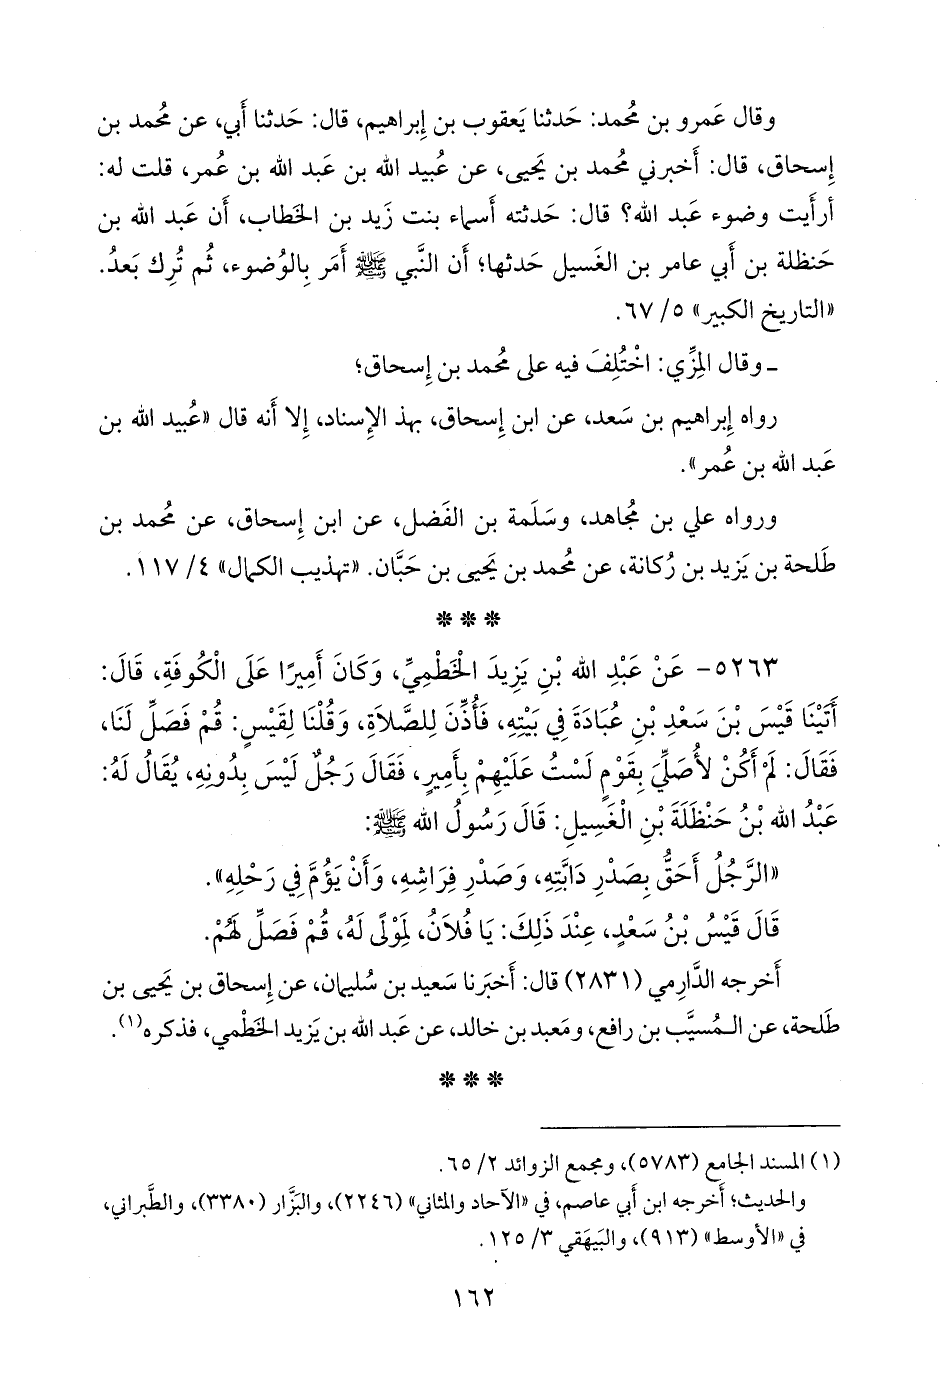 وقال عَمرو بن مُحمد: حَدثنا يَعقوب بن إِبراهيم، قال: حَدثنا أَبي، عن مُحمد بن
إِسحاق، قال: أَخبرني مُحمد بن يَحيى، عن عُبيد الله بن عَبد الله بن عُمر، قلت له:
أرأَيت وضوء عَبد الله؟ قال: حَدثته أَسماء بنت زَيد بن الخَطاب، أَن عَبد الله بن
حَنظلة بن أَبي عامر بن الغَسيل حَدثها؛ أَن النَّبي ﷺ أَمَر بِالوُضوء، ثُم تُرِك بَعدُ.
«التاريخ الكبير» ٥/ ٦٧.
ـ وقال المِزِّي: اخْتُلِفَ فيه على مُحمد بن إِسحاق؛
رواه إِبراهيم بن سَعد، عن ابن إِسحاق، بهذ الإِسناد، إِلا أَنه قال «عُبيد الله بن
عَبد الله بن عُمر».
ورواه علي بن مُجاهد، وسَلَمة بن الفَضل، عن ابن إِسحاق، عن مُحمد بن
طَلحة بن يَزيد بن رُكانة، عن مُحمد بن يَحيى بن حَبَّان. «تهذيب الكمال» ٤/ ١١٧.
* * *
٥٢٦٣- عَنْ عَبْدِ الله بْنِ يَزِيدَ الْخَطْمِيِّ، وَكَانَ أَمِيرًا عَلَى الْكُوفَةِ، قَالَ:
أَتَيْنَا قَيْسَ بْنَ سَعْدِ بْنِ عُبَادَةَ فِي بَيْتِهِ، فَأُذِّنَ لِلصَّلَاةِ، وَقُلْنَا لِقَيْسٍ: قُمْ فَصَلِّ لَنَا،
فَقَالَ: لَمْ أَكُنْ لأُصَلِّيَ بِقَوْمٍ لَسْتُ عَلَيْهِمْ بِأَمِيرٍ، فَقَالَ رَجُلٌ لَيْسَ بِدُونِهِ، يُقَالُ لَهُ:
عَبْدُ الله بْنُ حَنْظَلَةَ بْنِ الْغَسِيلِ: قَالَ رَسُولُ الله ﷺ:
«الرَّجُلُ أَحَقُّ بِصَدْرِ دَابَّتِهِ، وَصَدْرِ فِرَاشِهِ، وَأَنْ يَؤُمَّ فِي رَحْلِهِ».
قَالَ قَيْسُ بْنُ سَعْدٍ، عِنْدَ ذَلِكَ: يَا فُلَانُ، لِمَوْلًى لَهُ، قُمْ فَصَلِّ لَهُمْ.
أَخرجه الدَّارِمي (٢٨٣١) قال: أَخبَرنا سَعيد بن سُليمان، عن إِسحاق بن يَحيى بن
طَلحة، عن المُسيَّب بن رافع، ومَعبد بن خالد، عن عَبد الله بن يَزيد الخَطْمي، فذكره(١).
* * *
(١) المسند الجامع (٥٧٨٣)، ومجمع الزوائد ٢/ ٦٥.
والحديث؛ أَخرجه ابن أَبي عاصم، في «الآحاد والمثاني» (٢٢٤٦)، والبَزَّار (٣٣٨٠)، والطَّبراني،
في «الأوسط» (٩١٣)، والبَيهَقي ٣/ ١٢٥.
١٦٢